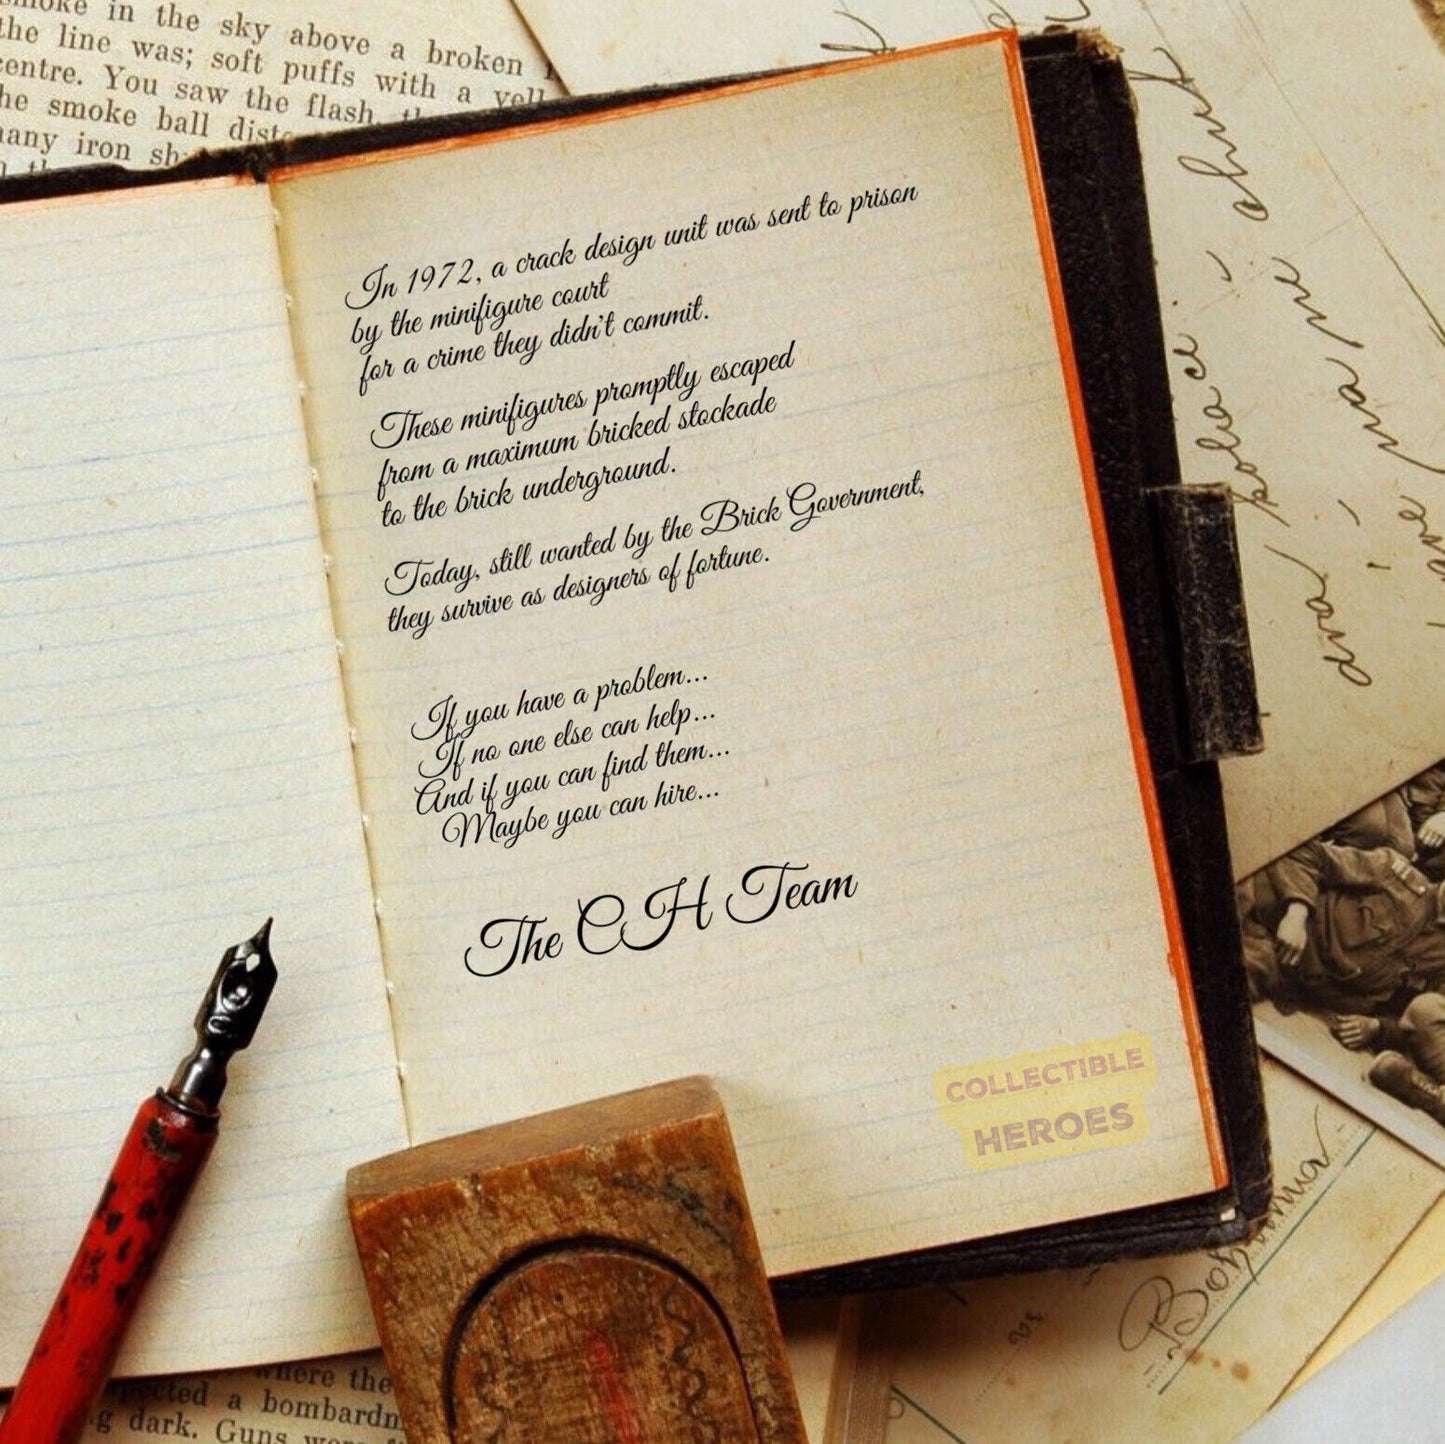 smoke in the sky above a broken
the line was; soft puffs with a
centre. You saw the flash,
the smoke ball
many iron
In 1972, a crack design unit was sent to prison
by the minifigure court
for a crime they didn't commit.
These minifigures promptly escaped
from a maximum bricked stockade
to the brick underground.
Today, still wanted by the Brick Government,
they survive as designers of fortune.
If you have a problem...
If no one else can help...
And if you can find them...
Maybe you can hire...
The CH Team
COLLECTIBLE
HEROES
where the
a
dark. Guns